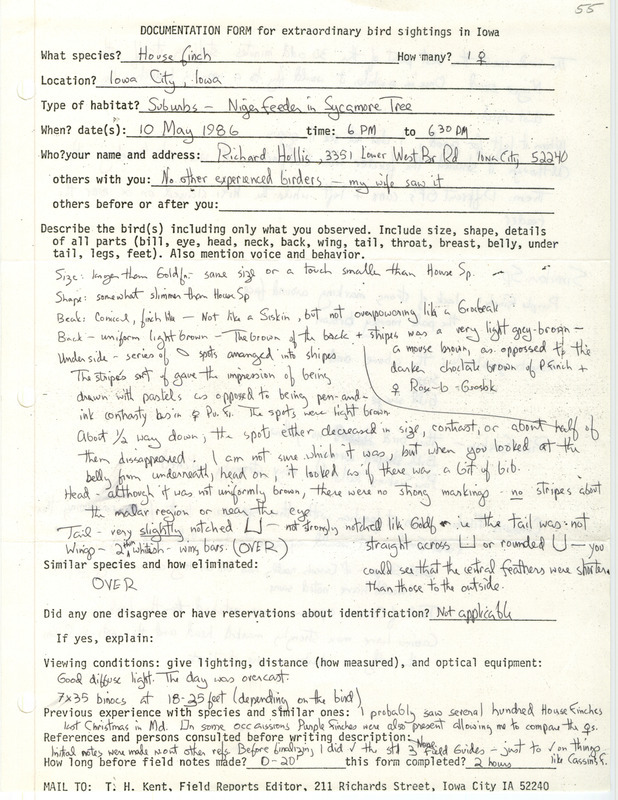 55
DOCUMENTATION FORM for extraordinary bird sightings in Iowa
What species? House finch How many? 1 ♀
Location? Iowa City, Iowa
Type of habitat? Suburbs - Niger feeder in Sycamore Tree
When? date(s): 10 May 1986 time: 6 PM to 630 PM
Who?your name and address: Richard Hollis, 3351 Lower West Br Rd Iowa City 52240
others with you: No other experienced birders - my wife saw it
others before or after you:
Describe the bird(s) including only what you observed. Include size, shape, details
of all parts (bill, eye, head, neck, back, wing, tail, throat, breast, belly, under
tail, legs, feet). Also mention voice and behavior.
Size: longer than Goldfn. same size or a touch smaller than House Sp.
Shape: somewhat slimmer than House Sp
Beak: Conical, finch like - Not like a Siskin, but not overpowering like a Grosbeak
Back - uniform light brown - The brown of the back + stripes was a very light grey-brown -
a mouse brown, as oppossed to the
darker choclate brown of P Finch +
♀ Rose-b -Grosbk
Underside - series of spots arranged into stripes
The stripes sort of gave the impression of being
drawn with pastels as opposed to being pen-and-
ink contrasty as in ♀ Pu. Fi. The spots were light brown.
About 1/2 way down, the spots either decreased in size, contrast, or about half of
them dissappeared. I am not sure which it was, but when you looked at the
belly from underneath, head on, it looked as if there was a bit of bib.
Head - although it was not uniformly brown, there were no strong markings - no stripes about
the malar region or near the eye
Tail - very slightly notched - not strongly notched like Goldf - i.e the tail was not
straight across or rounded - you
could see that the central feathers were shorter
than those to the outside.
Wings - 2 thin whitish - wing bars. (OVER)
Similar species and how eliminated:
OVER
Did any one disagree or have reservations about identification? Not applicable
If yes, explain:
Viewing conditions: give lighting, distance (how measured), and optical equipment:
Good diffuse light. The day was overcast.
7x35 binocs at 18-25 feet (depending on the bird)
Previous experience with species and similar ones: I probably saw several hundred House Finches
last Christmas in Md. In some occassions Purple Finches were also present allowing me to compare the ♀s.
References and persons consulted before writing description:
Initial notes were made w out other refs. Before finalizing I did ✓ the std 3 Field Guides - just to ✓ on things
like Cassins F.
How long before field notes made? 0-20' this form completed? 2 hours
MAIL TO: T. H. Kent, Field Reports Editor, 211 Richards Street, Iowa City IA 52240